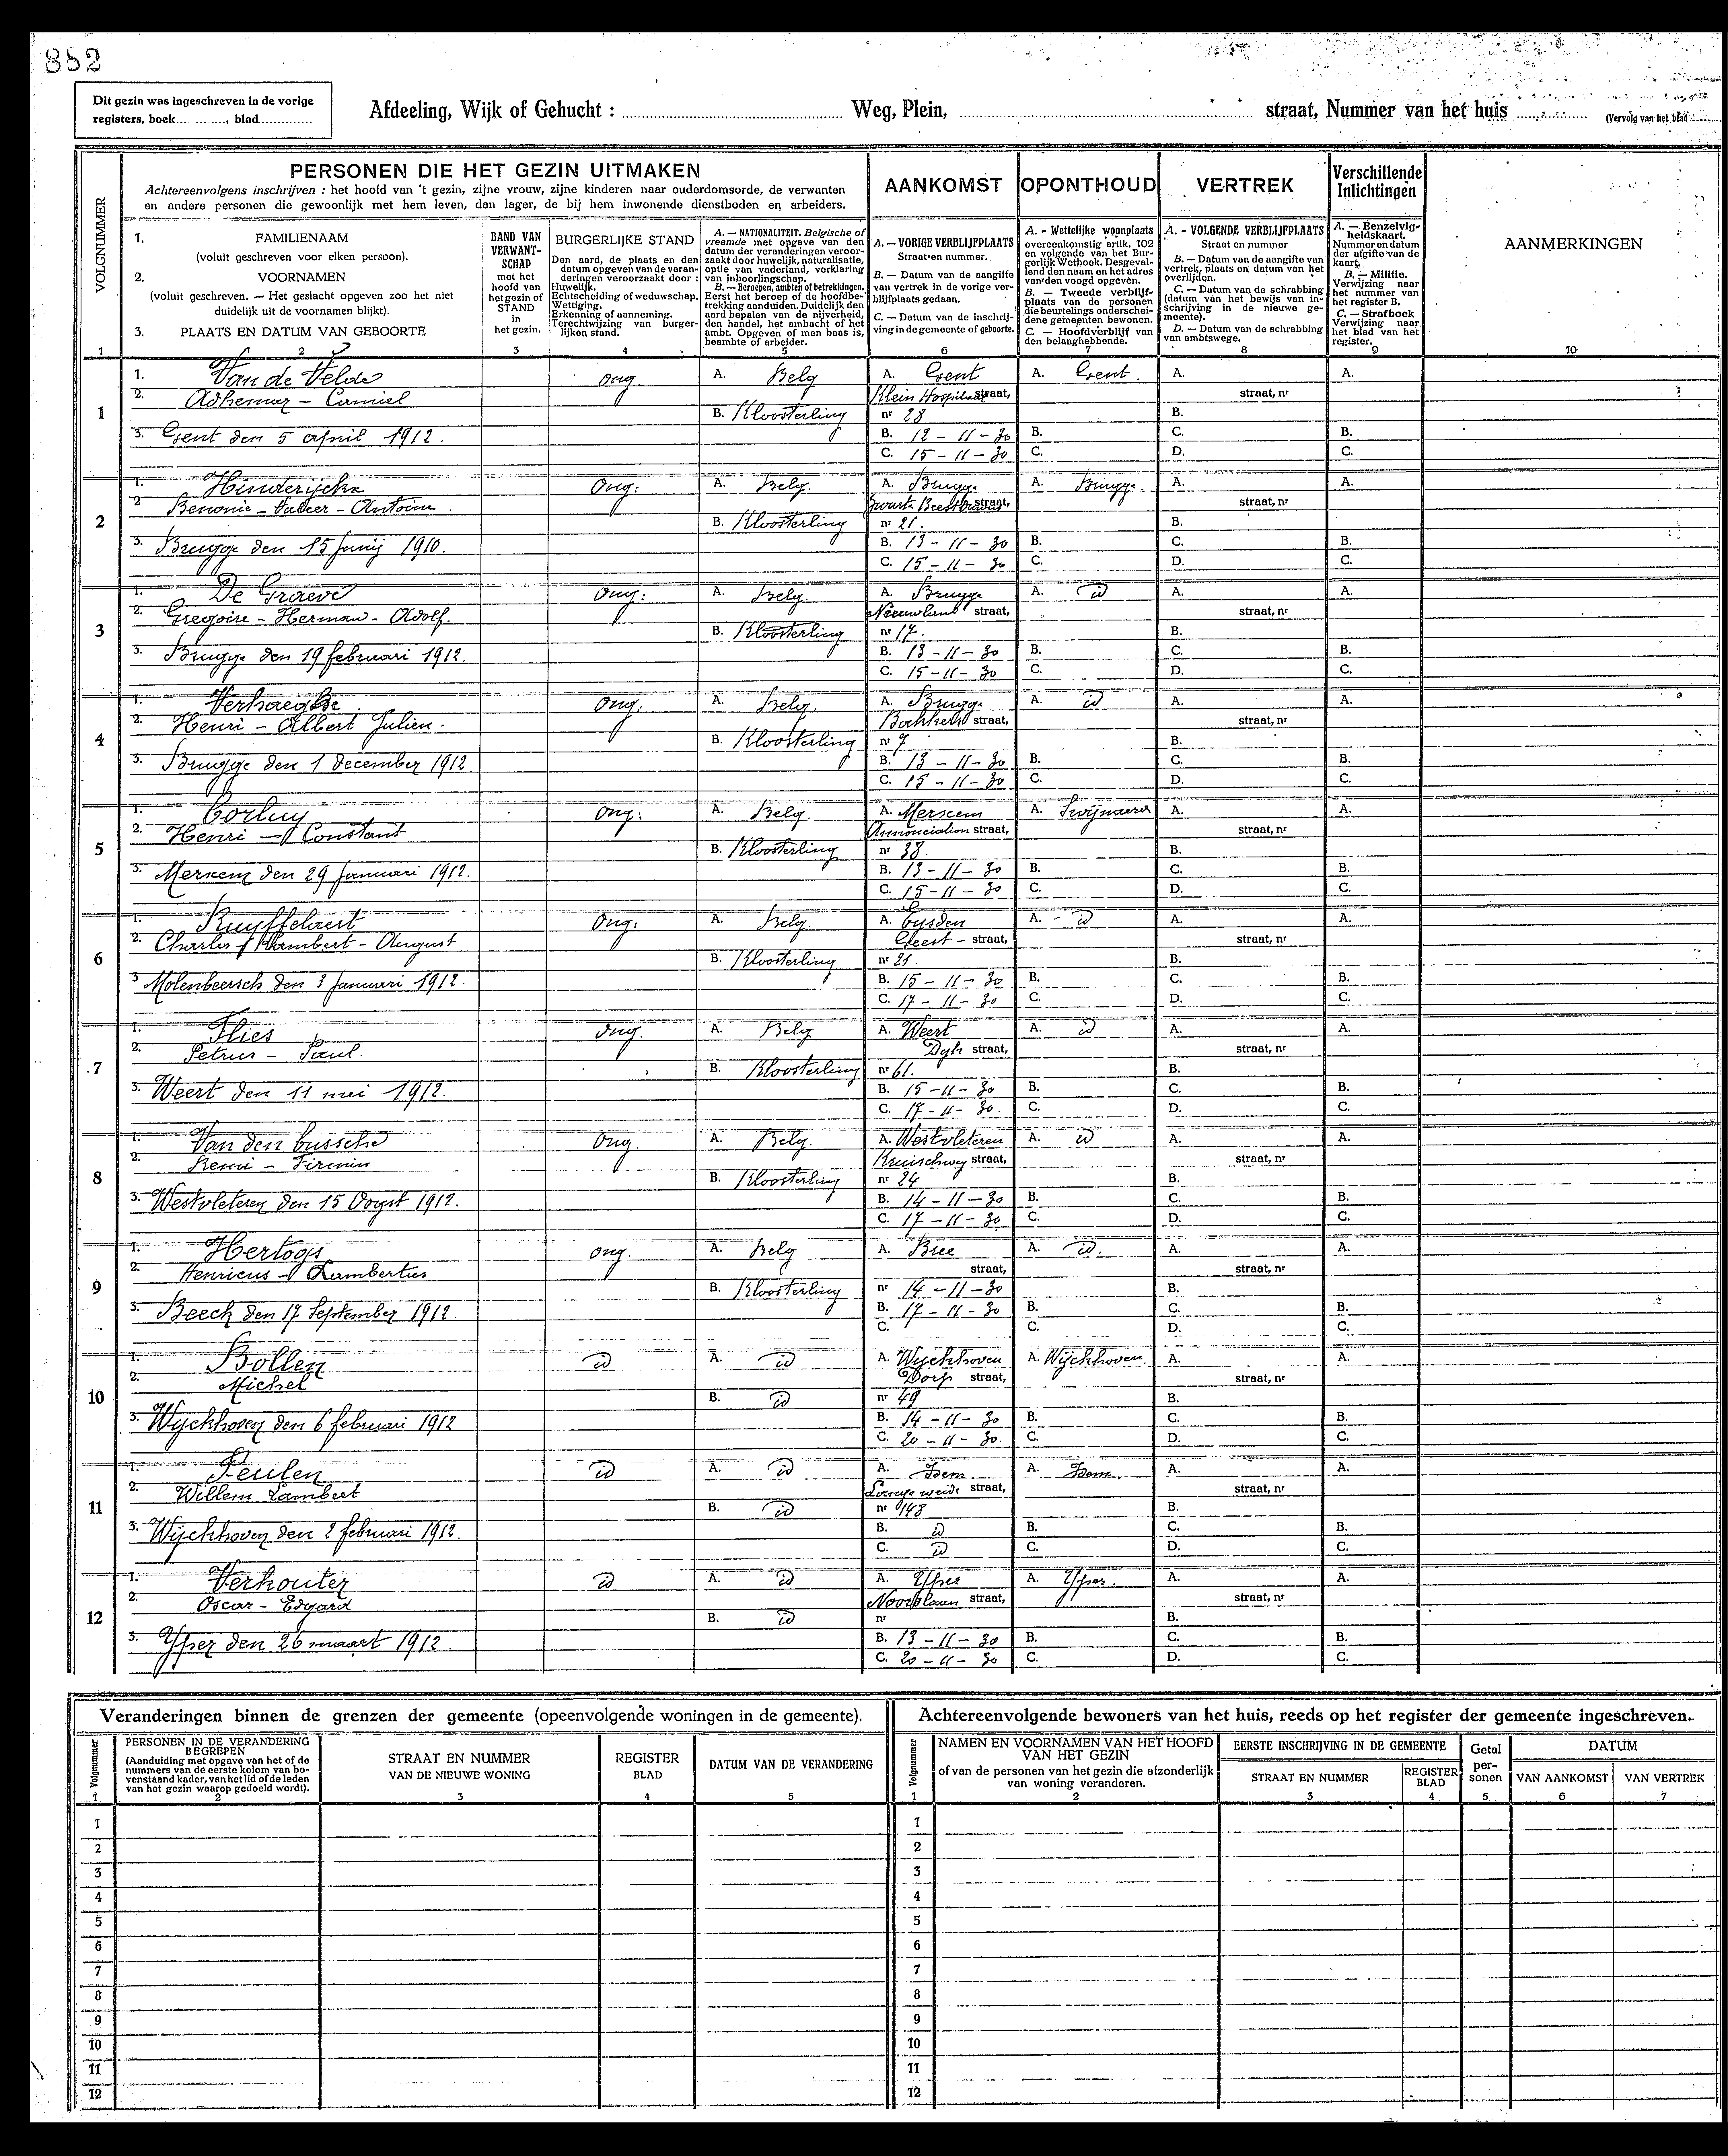 882
Dit gezin was ingeschreven in de vorige
registers, boek............, blad............
Afdeeling, Wijk of Gehucht : ............ Weg, Plein, ............ straat, Nummer van het huis ............ (Vervolg van het blad ......
VOLGNUMMER
PERSONEN DIE HET GEZIN UITMAKEN
Achtereenvolgens inschrijven : het hoofd van 't gezin, zijne vrouw, zijne kinderen naar ouderdomsorde, de verwanten
en andere personen die gewoonlijk met hem leven, dan lager, de bij hem inwonende dienstboden en arbeiders.
AANKOMST
OPONTHOUD
VERTREK
Verschillende
Inlichtingen
1. FAMILIENAAM
(voluit geschreven voor elken persoon).
2. VOORNAMEN
(voluit geschreven. — Het geslacht opgeven zoo het niet
duidelijk uit de voornamen blijkt).
3. PLAATS EN DATUM VAN GEBOORTE
BAND VAN
VERWANT-
SCHAP
met het
hoofd van
het gezin of
STAND
in
het gezin.
BURGERLIJKE STAND
Den aard, de plaats en den
datum opgeven van de veran-
deringen veroorzaakt door :
Huwelijk.
Echtscheiding of weduwschap.
Wettiging.
Erkenning of aanneming.
Terechtwijzing van burger-
lijken stand.
A. — NATIONALITEIT. Belgische of
vreemde met opgave van den
datum der veranderingen veroor-
zaakt door huwelijk, naturalisatie,
optie van vaderland, verklaring
van inboorlingschap.
B. — Beroepen, ambten of betrekkingen.
Eerst het beroep of de hoofdbe-
trekking aanduiden. Duidelijk den
aard bepalen van de nijverheid,
den handel, het ambacht of het
ambt. Opgeven of men baas is,
beambte of arbeider.
A. — VORIGE VERBLIJFPLAATS
Straat en nummer.
B. — Datum van de aangifte
van vertrek in de vorige ver-
blijfplaats gedaan.
C. — Datum van de inschrij-
ving in de gemeente of geboorte.
A. - Wettelijke woonplaats
overeenkomstig artik. 102
en volgende van het Bur-
gerlijk Wetboek. Desgeval-
lend den naam en het adres
van den voogd opgeven.
B. — Tweede verblijf-
plaats van de personen
die beurtelings onderschei-
dene gemeenten bewonen.
C. — Hoofdverblijf van
den belanghebbende.
A. - VOLGENDE VERBLIJFPLAATS
Straat en nummer
B. — Datum van de aangifte van
vertrek, plaats en datum van het
overlijden.
C. — Datum van de schrabbing
(datum van het bewijs van in-
schrijving in de nieuwe ge-
meente).
D. — Datum van de schrabbing
van ambtswege.
A. — Eenzelvig-
heidskaart.
Nummer en datum
der afgifte van de
kaart.
B. — Militie.
Verwijzing naar
het nummer van
het register B.
C. — Strafboek
Verwijzing naar
het blad van het
register.
AANMERKINGEN
1 2 3 4 5 6 7 8 9 10
1
1. Van de Velde ong. A. Belg A. Gent A. Gent. A. A.
2. Adhemar - Camiel Klein Hospitaal straat, straat, nr
B. Kloosterling nr 28 B.
3. Gent den 5 april 1912. B. 12 - 11 - 30 B. C. B.
C. 15 - 11 - 30 C. D. C.
2
1. Hinderijckx Ong: A. Belg. A. Brugge A. Brugge. A. A.
2 Benonie - - Antoine straat, straat, nr
B. Kloosterling nr 21. B.
3. Brugge den 15 Junij 1910. B. 13 - 11 - 30 B. C. B.
C. 15 - 11 - 30 C. D. C.
3
1. De Graeve Ong: A. Belg. A. Brugge A. id A. A.
2. Gregoire - Herman - Adolf. Nieuwland straat, straat, nr
B. Kloosterling nr 17. B.
3. Brugge den 19 februari 1912. B. 13 - 11 - 30 B. C. B.
C. 15 - 11 - 30 C. D. C.
4
1. Verhaeghe Ong. A. Belg. A. Brugge A. id A. A.
2. Henri - Albert Julien. straat, straat, nr
B. Kloosterling nr 7 B.
3. Brugge den 1 december 1912 B. 13 - 11 - 30 B. C. B.
C. 15 - 11 - 30 C. D. C.
5
1. Corluy Ong: A. Belg. A. Merxem A. A. A.
2. Henri - Constant Annonciation straat, straat, nr
B. Kloosterling nr 38. B.
3. Merxem den 29 Januari 1912. B. 13 - 11 - 30 B. C. B.
C. 15 - 11 - 30 C. D. C.
6
1. Ruyffelaert Ong: A. Belg. A. Eysden A. - id A. A.
2. Charles Lambert - August Geest - straat, straat, nr
B. Kloosterling nr 21. B.
3 Molenbeersch den 3 Januari 1912. B. 15 - 11 - 30 B. C. B.
C. 17 - 11 - 30 C. D. C.
7
1. Flies Ong. A. Belg A. Weert A. id A. A.
2. Petrus - Paul. Dyk straat, straat, nr
B. Kloosterling nr 61. B.
3. Weert den 11 mei 1912. B. 15 - 11 - 30 B. C. B.
C. 17 - 11 - 30. C. D. C.
8
1. Van den bussche Ong. A. Belg. A. Westvleteren A. id A. A.
2. Remi - Firmin Kruischweg straat, straat, nr
B. Kloosterling nr 24 B.
3. Westvleteren den 15 Oogst 1912. B. 14 - 11 - 30 B. C. B.
C. 17 - 11 - 30 C. D. C.
9
1. Hertogs ong. A. Belg A. Bree A. id. A. A.
2. Henricus - Lambertus straat, straat, nr
B. Kloosterling nr 14 - 11 - 30 B.
3. Beeck den 17 September 1912. B. 17 - 11 - 30 B. C. B.
C. C. D. C.
10
1. Bollen id A. id A. Wyckhoven A. Wijckhoven. A. A.
2. Michel Dorp straat, straat, nr
B. id nr 49 B.
3. Wyckhoven den 6 februari 1912 B. 14 - 11 - 30 B. C. B.
C. 20 - 11 - 30. C. D. C.
11
1. Peulen id A. id A. Idem A. Idem. A. A.
2. Willem Lambert straat, straat, nr
B. id nr 148 B.
3. Wijckhoven den 2 februari 1912. B. id B. C. B.
C. id C. D. C.
12
1. Verhouter id A. id A. Yper A. Yper. A. A.
2. Oscar - Edgard straat, straat, nr
B. id nr B.
3. Yper den 26 maart 1912. B. 13 - 11 - 30 B. C. B.
C. 20 - 11 - 30 C. D. C.
Veranderingen binnen de grenzen der gemeente (opeenvolgende woningen in de gemeente).
Volgnummer
PERSONEN IN DE VERANDERING
BEGREPEN
(Aanduiding met opgave van het of de
nummers van de eerste kolom van bo-
venstaand kader, van het lid of de leden
van het gezin waarop gedoeld wordt).
STRAAT EN NUMMER
VAN DE NIEUWE WONING
REGISTER
BLAD
DATUM VAN DE VERANDERING
1 2 3 4 5
1
2
3
4
5
6
7
8
9
10
11
12
Achtereenvolgende bewoners van het huis, reeds op het register der gemeente ingeschreven.
Volgnummer
NAMEN EN VOORNAMEN VAN HET HOOFD
VAN HET GEZIN
of van de personen van het gezin die afzonderlijk
van woning veranderen.
EERSTE INSCHRIJVING IN DE GEMEENTE
STRAAT EN NUMMER
REGISTER
BLAD
Getal
per-
sonen
DATUM
VAN AANKOMST
VAN VERTREK
1 2 3 4 5 6 7
1
2
3
4
5
6
7
8
9
10
11
12